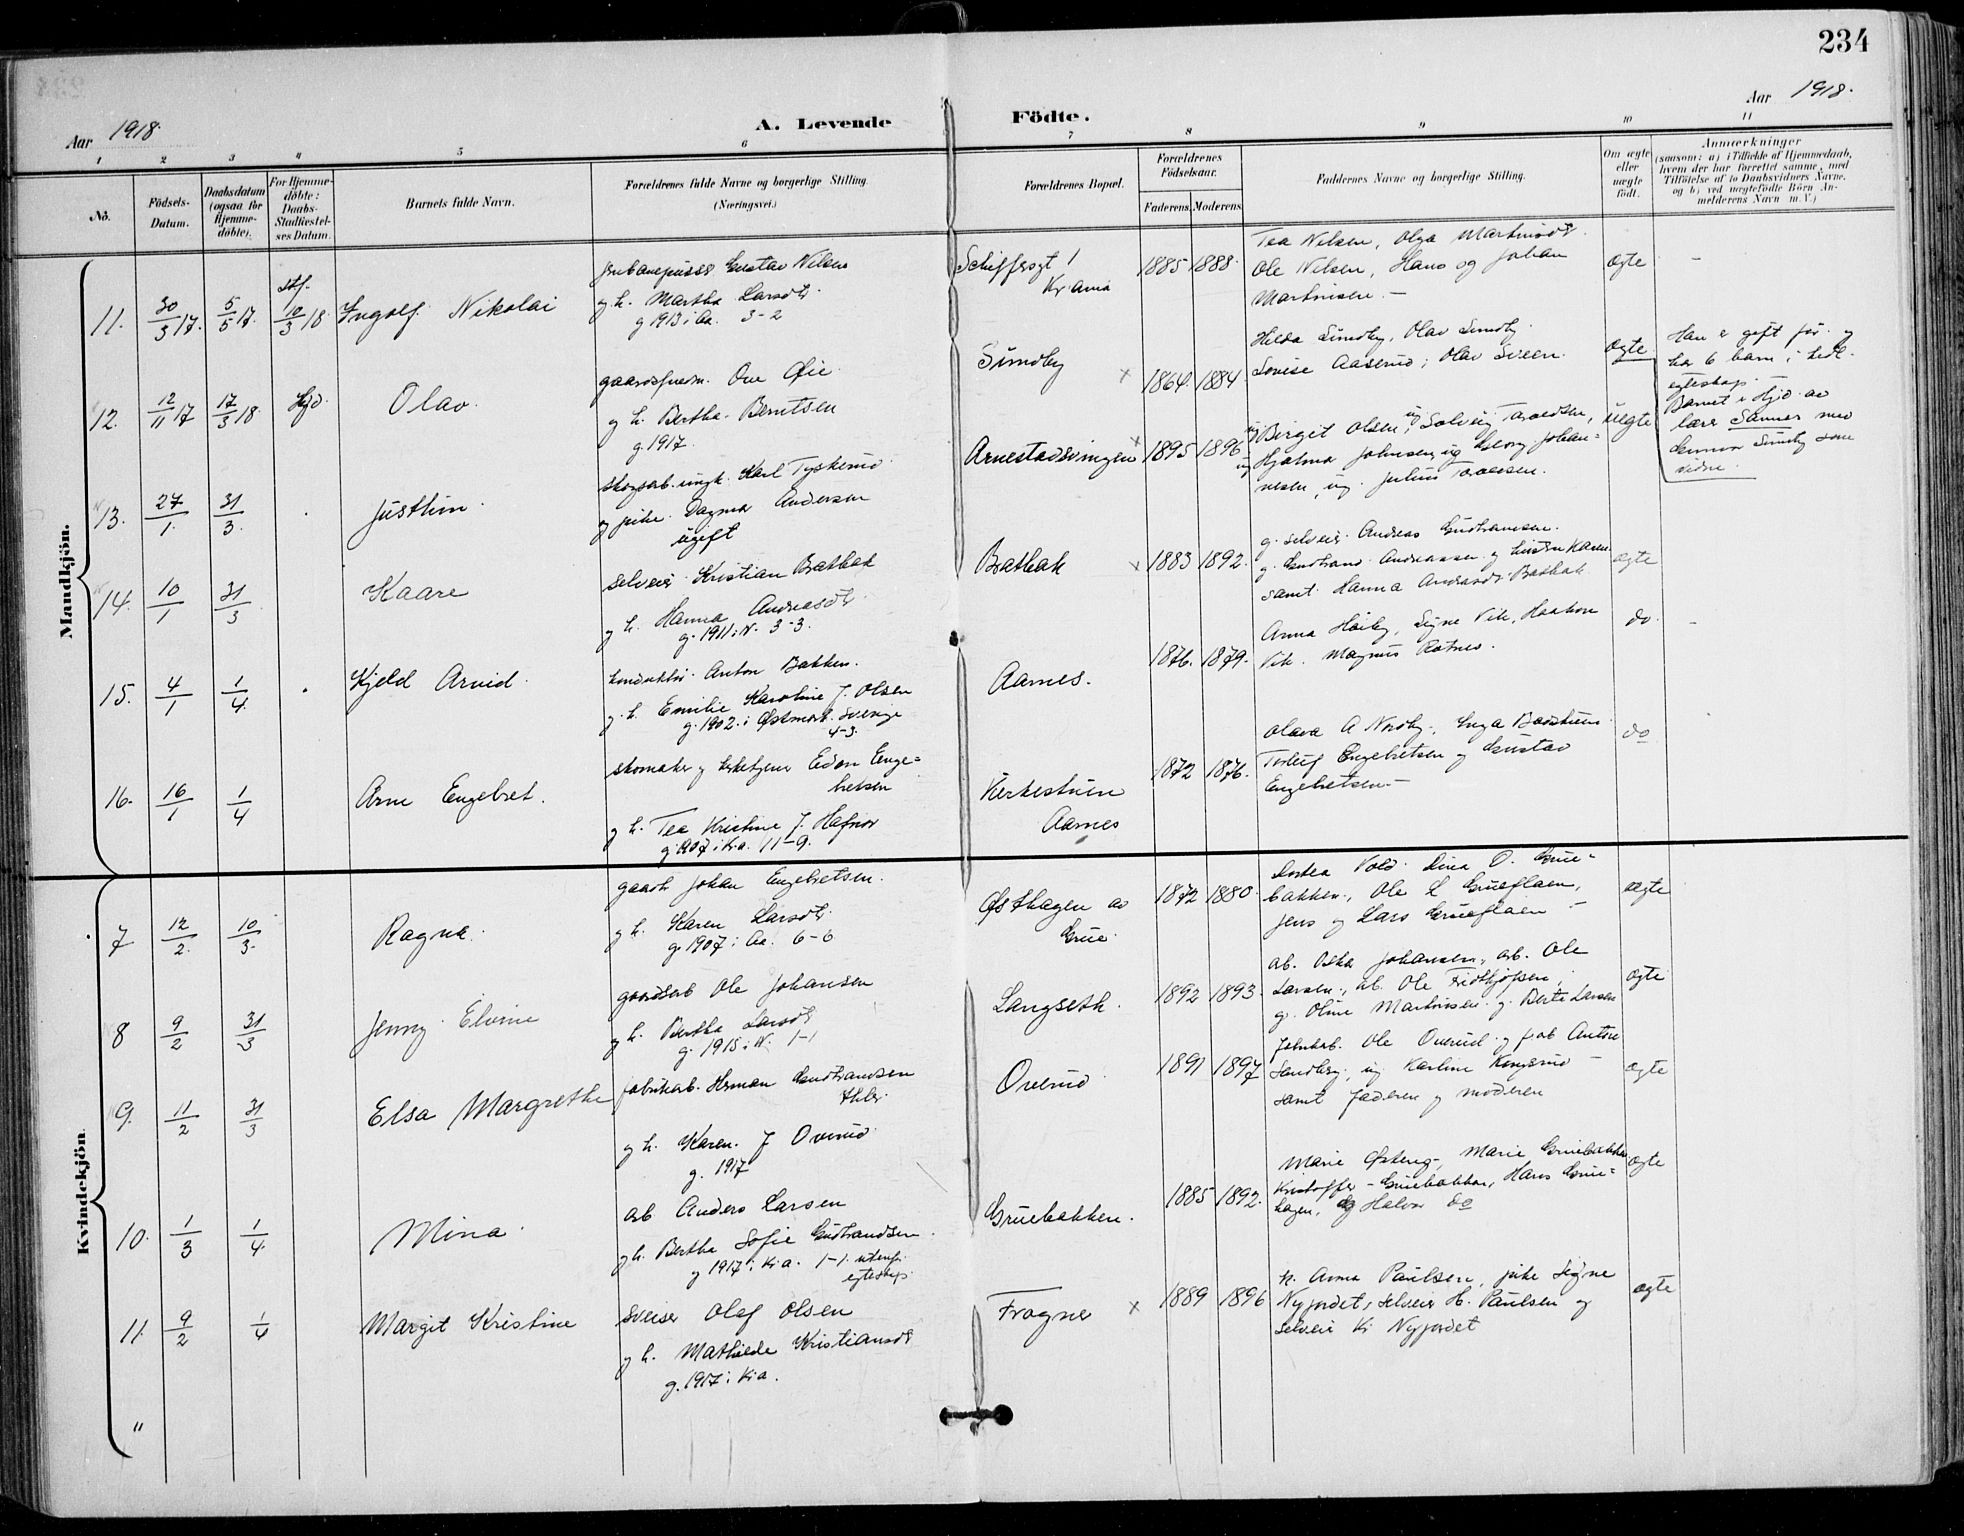 234
Aar 1918.
A. Levende Födte.
Aar 1918.
1 2 3 4 5 6 7 8 9 10 11
No.
Födsels-Datum.
Daabsdatum (ogsaa for Hjemme-döbte).
For Hjemme-döbte: Daabs-Stadfæstel-ses Datum.
Barnets fulde Navn.
Forældrenes fulde Navne og borgerlige Stilling.
(Næringsvei.)
Forældrenes Bopæl.
Forældrenes Födselsaar.
Faderens. Moderens.
Faddernes Navne og borgerlige Stilling.
Om ægte eller uægte födt.
Anmærkninger
(saasom: a) i Tilfælde af Hjemmedaab, hvem der har forrettet samme, med Tilföielse af to Daabsvidners Navne, og b) ved uægtefödte Börn An-melderens Navn m. V.)
Mandkjön.
11. 30/3 17. 5/5 17. stf. 10/3 18 Ingolf Nikolai
Gustav Nilsen
g h. Martha Larsdt.
g 1913 i Aa. 3-2
Schiffersgt 1
Kr.ania
1885 1888.
Tea Nilsen, Olga Martinsdt.
Ole Nilsen, Hans og Johan
Martinsen. —
ægte —
12. 12/11 17 17/3 18. Hjd. Olav.
Ove Øie.
g h. Bertha Berntsen
g. 1917.
Sundby x
1864. 1884
Hilda Sundby, Olav Sundby.
Lovise Aaserud, Olav Sveen.
ægte
Han er gift før. og
ha 6 barn i tidl.
egteskap.
Barnet i Hjd. av
lærer Sannes med
Gunnar Sundby som
vidne.
13. 27/1. 31/3. Justhin.
skogsarb. ungk. Karl Tyskerud
og pike. Dagmar Andersen
ugift
Arnestadsvingen x
1895 1896
ug Birgit Olsen, ug Solveig Tovaldsen,
ug Hjalmar Johnsen, ug Georg Johan-
nesen, ug. Julius Tovaldsen.
uegte
14. 10/1 31/3 Kaare
selveier Kristian Bratbak
g h. Hanna Andreasdt.
g. 1911 i N. 3-3.
Bratbak x
1883 1892.
g. selveier. Andreas Gudbrandsen.
g. Gudbrand Andreassen og hustru Karen
samt. Hanna Andreasdt. Bratbak
ægte
15. 4/1 1/4 Kjeld Arvid.
konduktør Anton Bakken.
g. h. Emilie Karoline J. Olsen
g. 1902. i Østmark. Sverige
4-3.
Aarnes.
1876. 1879.
Anna Høiby, Signe Vik, Haakon
Vik. Magnus Rotnes.
do. —
16. 16/1 1/4 Arne Engebret.
skomaker g kirketjener Edon Enge-
bretsen
g h. Tea Kristine J. Hafnor
g. 1907 i Kr.a. 11-9.
Kirkestuen
Aarnes
1872 1876.
Olava A Nordby, Inga
Torleif Engebretsen g Gustav
Engebretsen —
do
Kvindekjön.
7 12/2. 10/3. Ragna.
gaardr Johan Engebretsen.
g h. Karen Larsdt.
g. 1907 i Aa. 6-6
Østhagen av
Grue.
1872 1880.
Dorthea Vold. Dina O. Grue-
bakken, Ole L Grueflaen,
Jens g Lars Grueflaen —
ægte
8 9/2 31/3 Jenny Elvine
gaardsarb Ole Johansen
g h. Bertha Larsdt
g. 1915 i N. 1-1
Langseth.
1892 1893.
ab. Oskar Johansen, arb. Ole
Larsen, ab. Ole Fridthjofsen,
g. Oline Martinsen. g. Berte Larsen
ægte
9. 11/2 31/3 Elsa Margrethe
fabrikarb. Herman Gudbrandsen
g h. Karen. J Overud
g. 1917
Overud
1891 1897
fabrikab. Ole Overud g f.ab Anton
Sandberg, ug Karline Kongsrud —
samt faderen g moderen
ægte
10. 1/3 1/4. Mina.
arb Anders Larsen
g h. Bertha Sofie Gudbrandsen.
g 1917 i Kr.a. 1-1. utenf.
egteskap.
Gruebakken.
1885 1892.
Marie Østeng, Marie Gruebakken
Kristoffer Gruebakken, Hans Grue-
hagen, og Halvor do
ægte
11. 9/2 1/4 Margit Kristine
sveiser Olaf Olsen
g h. Mathilde Kristiansdt
g. 1917 i Kr.a.
Frogner x
1889 1896
h. Anna Paulsen, pike Signe
Nyjordet, selveier H. Paulsen g
selveie Kr Nyjordet
ægte
"